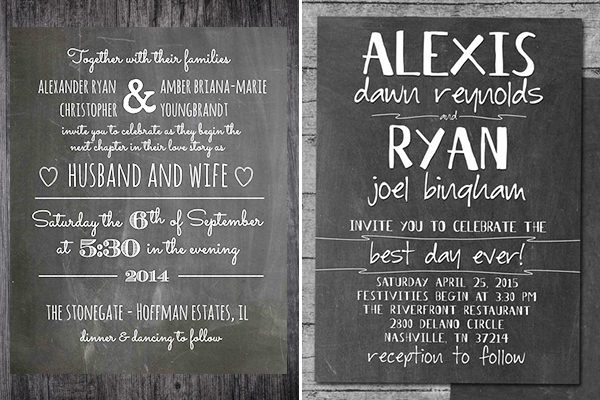 Together with their families
ALEXANDER RYAN
CHRISTOPHER
&
AMBER BRIANA-MARIE
YOUNGBRANDT
invite you to celebrate as they begin the
next chapter in their love story as
HUSBAND AND WIFE
Saturday the 6th of September
at 5:30 in the evening
2014
THE STONEGATE - HOFFMAN ESTATES, IL
dinner & dancing to follow
ALEXIS
dawn reynolds
and
RYAN
joel bingham
INVITE YOU TO CELEBRATE THE
best day ever!
SATURDAY APRIL 25, 2015
FESTIVITIES BEGIN AT 3:30 PM
THE RIVERFRONT RESTAURANT
2800 DELANO CIRCLE
NASHVILLE, TN 37214
reception to follow